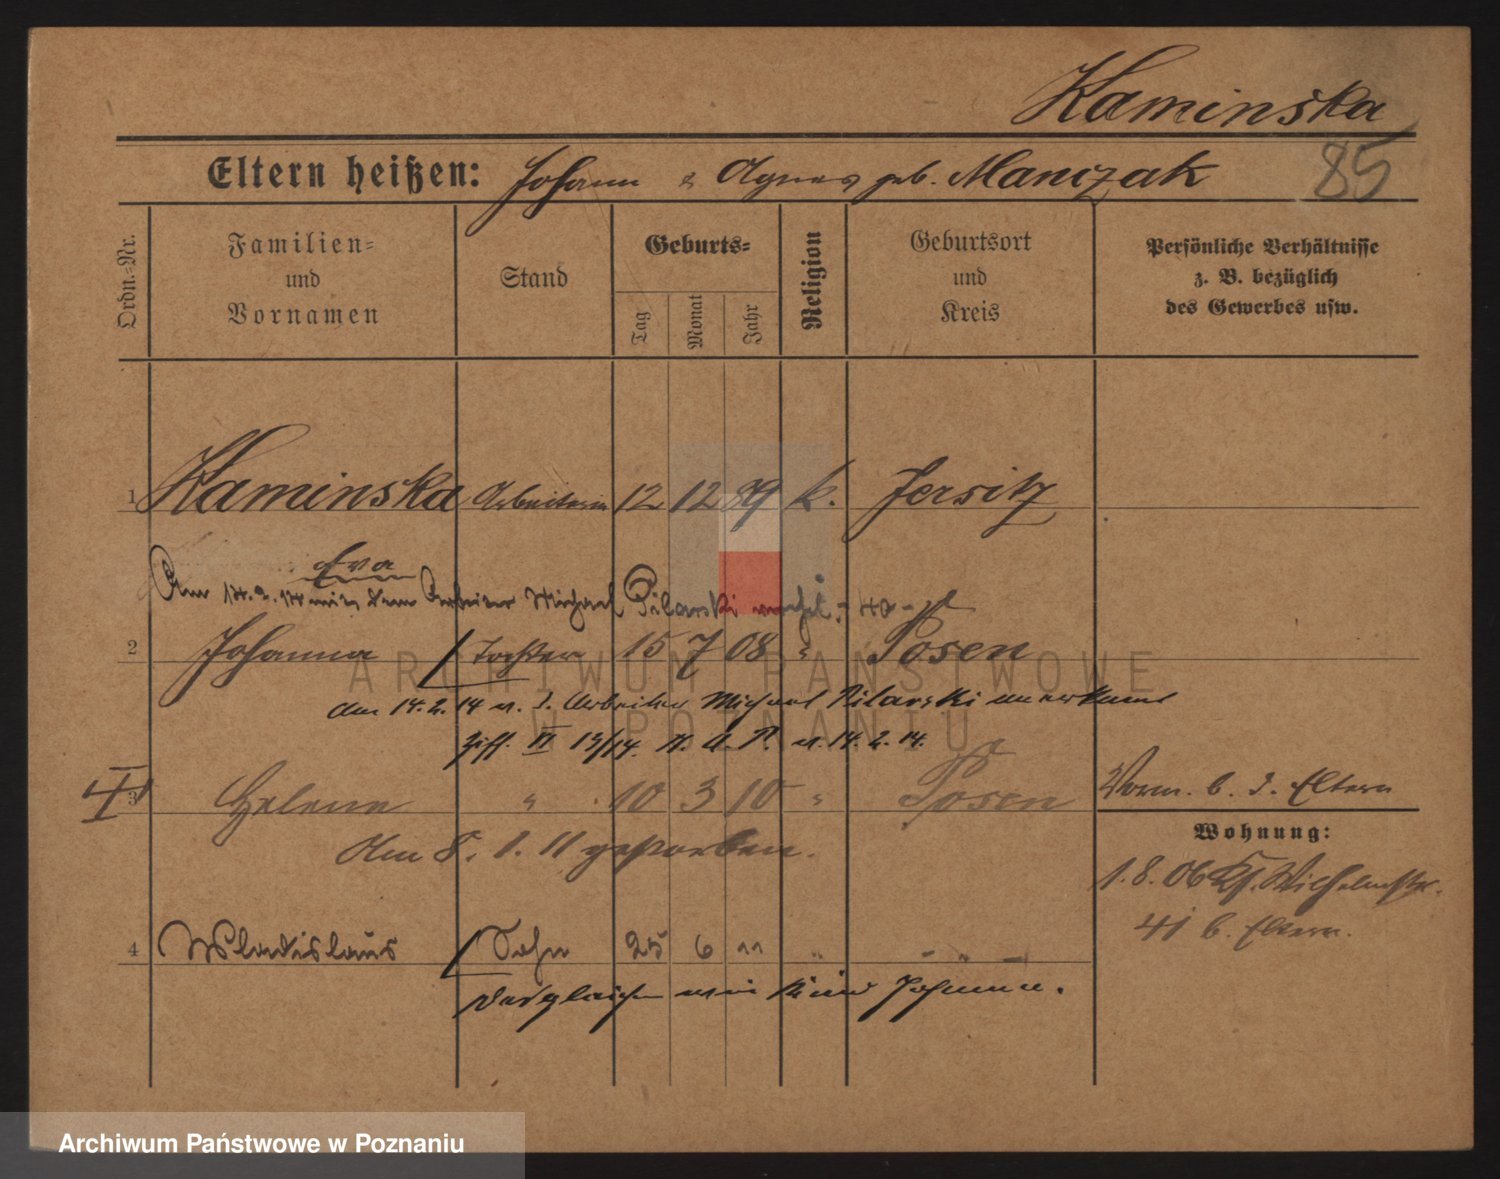 Kaminska
85
Eltern heißen: Johann & Agnes geb. Manczak
Ordn.=Nr.
Familien=
und
Vornamen
Stand
Geburts=
Tag
Monat
Jahr
Religion
Geburtsort
und
Kreis
Persönliche Verhältnisse
z. B. bezüglich
des Gewerbes usw.
1 Kaminska Arbeiterin 12 12 89 k. Jersitz
Eva
Am 14.2.14 mit dem Arbeiter Michael Pilarski verehel.
2 Johanna Tochter 15 7 08 " Posen
am 14.2.14 v. d. Arbeiter Michael Pilarski anerkannt
Ziff. VI 13/14. v. 14.2.14.
I
3 Helene " 10 3 10 " Posen
Am 8. 1. 11 gestorben.
Vorm. b. d. Eltern
Wohnung:
1.8.06 Wilhelmstr.
41 b. Eltern.
4 Wladislaus Sohn 25 6 11 " - " -
desgleichen wie Kind Johanna.
ARCHIWUM PAŃSTWOWE
W POZNANIU
Archiwum Państwowe w Poznaniu